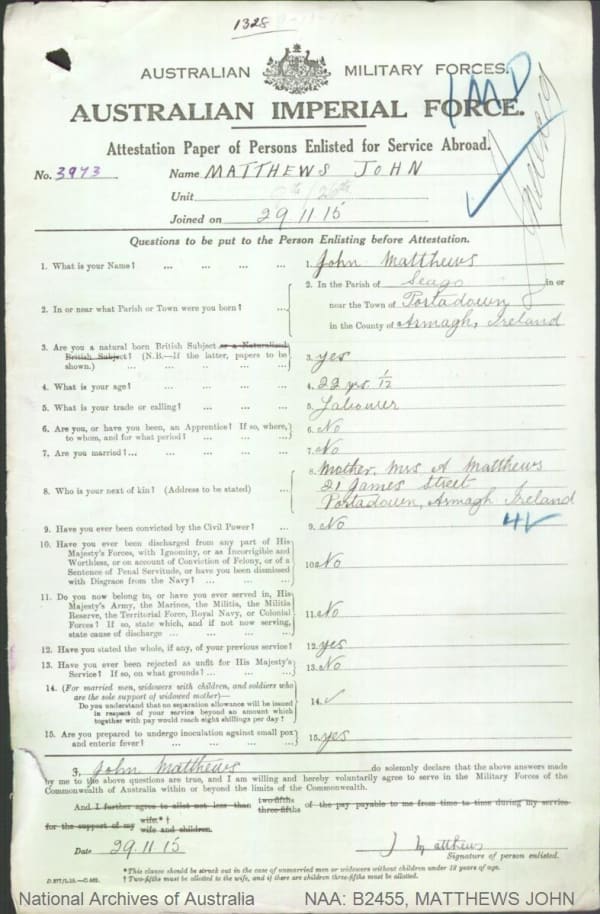 1328
AUSTRALIAN MILITARY FORCES.
AUSTRALIAN IMPERIAL FORCE.
Attestation Paper of Persons Enlisted for Service Abroad.
No. 3973 Name MATTHEWS JOHN
Unit
Joined on 29 11 15
Questions to be put to the Person Enlisting before Attestation.
1. What is your Name? ... ... ... ... 1. John Matthews
2. In or near what Parish or Town were you born? ... 2. In the Parish of Seago in or
near the Town of Portadown
in the County of Armagh, Ireland
3. Are you a natural born British Subject or a Naturalized
British Subject? (N.B.—If the latter, papers to be
shown.) ... ... ... ... 3. yes
4. What is your age? ... ... ... ... 4. 22 yrs 1/12
5. What is your trade or calling? ... ... ... 5. Labourer
6. Are you, or have you been, an Apprentice? If so, where,
to whom, and for what period? ... ... ... 6. No
7. Are you married? ... ... ... ... 7. No
8. Who is your next of kin? (Address to be stated) ... 8. Mother, Mrs A Matthews
21 James Street
Portadown, Armagh Ireland
9. Have you ever been convicted by the Civil Power? ... 9. No
10. Have you ever been discharged from any part of His
Majesty's Forces, with Ignominy, or as Incorrigible and
Worthless, or on account of Conviction of Felony, or of a
Sentence of Penal Servitude, or have you been dismissed
with Disgrace from the Navy? ... ... ... 10. No
11. Do you now belong to, or have you ever served in, His
Majesty's Army, the Marines, the Militia, the Militia
Reserve, the Territorial Force, Royal Navy, or Colonial
Forces? If so, state which, and if not now serving,
state cause of discharge ... ... ... ... 11. No
12. Have you stated the whole, if any, of your previous service? 12. yes
13. Have you ever been rejected as unfit for His Majesty's
Service? If so, on what grounds? ... ... ... 13. No
14. (For married men, widowers with children, and soldiers who
are the sole support of widowed mother)—
Do you understand that no separation allowance will be issued
in respect of your service beyond an amount which
together with pay would reach eight shillings per day? 14. ✓
15. Are you prepared to undergo inoculation against small pox
and enteric fever? ... ... ... ... 15. yes
I, John Matthews do solemnly declare that the above answers made
by me to the above questions are true, and I am willing and hereby voluntarily agree to serve in the Military Forces of the
Commonwealth of Australia within or beyond the limits of the Commonwealth.
And I further agree to allot not less than two-fifths three-fifths of the pay payable to me from time to time during my service
for the support of my wife.*† wife and children.
Date 29 11 15 J Matthews
Signature of person enlisted.
*This clause should be struck out in the case of unmarried men or widowers without children under 18 years of age.
† Two-fifths must be allotted to the wife, and if there are children three-fifths must be allotted.
National Archives of Australia NAA: B2455, MATTHEWS JOHN